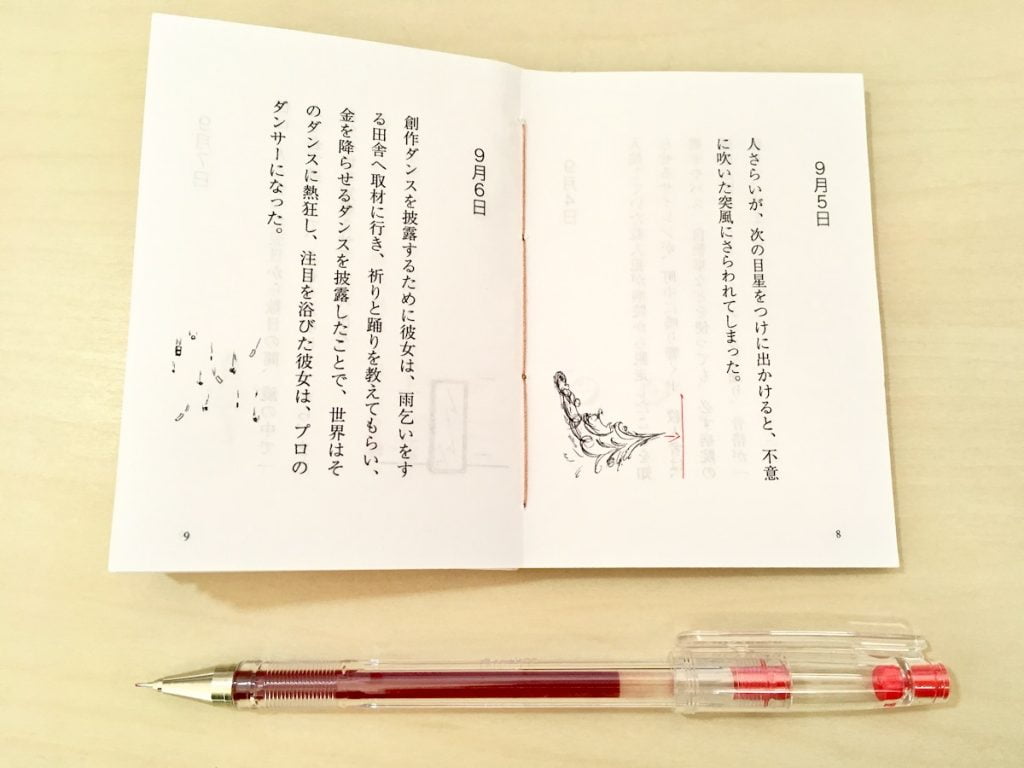 9月5日
人さらいが、次の目星をつけに出かけると、不意
に吹いた突風にさらわれてしまった。
8
9月6日
創作ダンスを披露するために彼女は、雨乞いをす
る田舎へ取材に行き、祈りと踊りを教えてもらい、
金を降らせるダンスを披露したことで、世界はそ
のダンスに熱狂し、注目を浴びた彼女は、プロの
ダンサーになった。
9